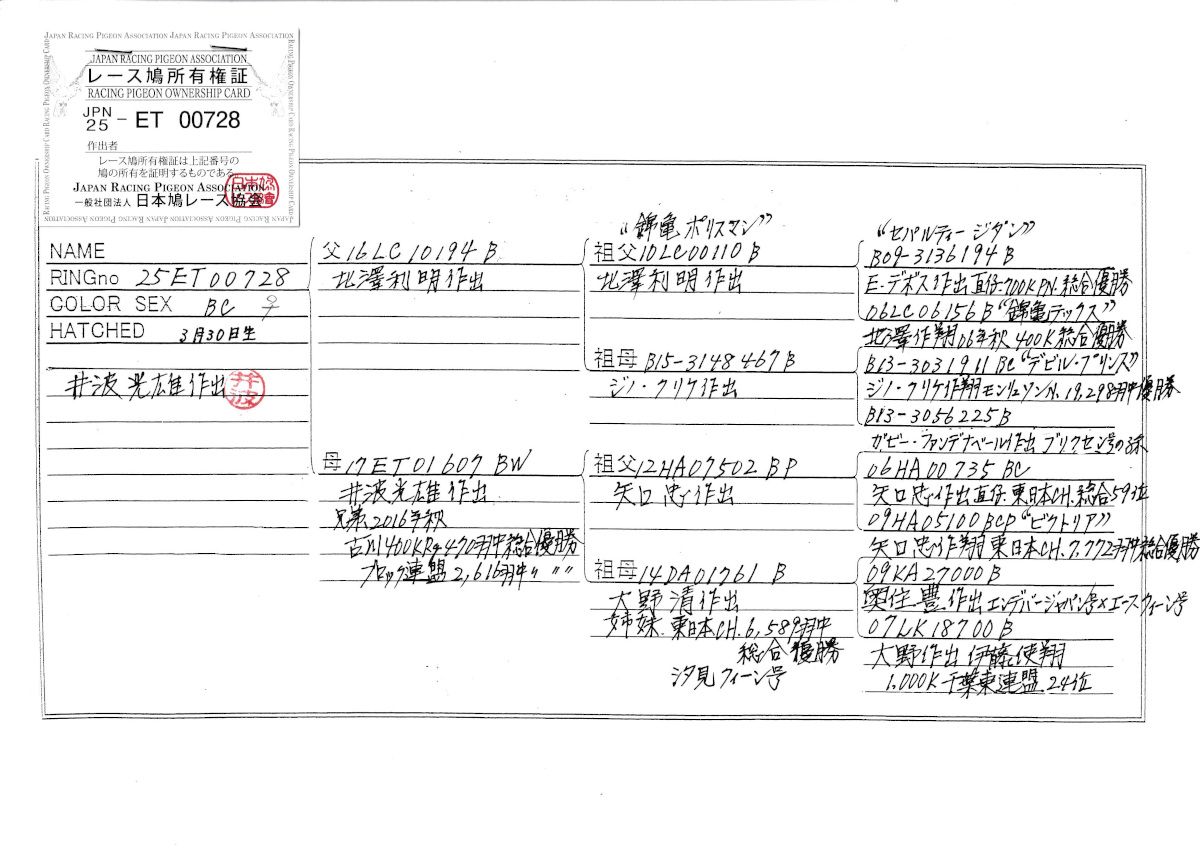 JAPAN RACING PIGEON ASSOCIATION JAPAN RACING PIGEON ASSOCIATION
JAPAN RACING PIGEON ASSOCIATION
レース鳩所有権証
RACING PIGEON OWNERSHIP CARD
JPN 25 - ET 00728
作出者
レース鳩所有権証は上記番号の
鳩の所有を証明するものである。
JAPAN RACING PIGEON ASSOCIATION
一般社団法人 日本鳩レース協会
NAME
RINGno 25ET00728
COLOR SEX BC ♀
HATCHED 3月30日生
井波光雄作出
父16LC10194B
北澤利明作出
母17ET01607BW
井波光雄作出
兄弟2016年秋
古川400KRg470羽中総合優勝
ブロック連盟2,616羽中〃 〃〃
"錦亀ポリスマン"
祖父10LC00110B
北澤利明作出
祖母B15-3148467B
ジノ・クリケ作出
祖父12HA07502BP
矢口忠作出
祖母14DA01761B
大野清作出
姉妹.東日本CH.6,589羽中
総合優勝
汐見クィーン号
"セパルティージダン"
B09-3136194B
E・デボス作出直仔700KPN.総合優勝
06LC06156B"錦亀テックス"
北澤作翔06年秋400K総合優勝
B13-3031911BC"デビル・プリンス"
ジノ・クリケ作翔モンリュソンN.19,298羽中優勝
B13-3056225B
ガビー・ファンデナベール作出 ブリクセン号の孫
06HA00735BC
矢口忠作出直仔.東日本CH.総合59位
09HA05100BCP"ビクトリア"
矢口忠作翔東日本CH.7,772羽中総合優勝
09KA27000B
奥住豊作出エンデバージャパン号×エースクィーン号
07LK18700B
大野作出伊藤使翔
1,000K千葉東連盟24位